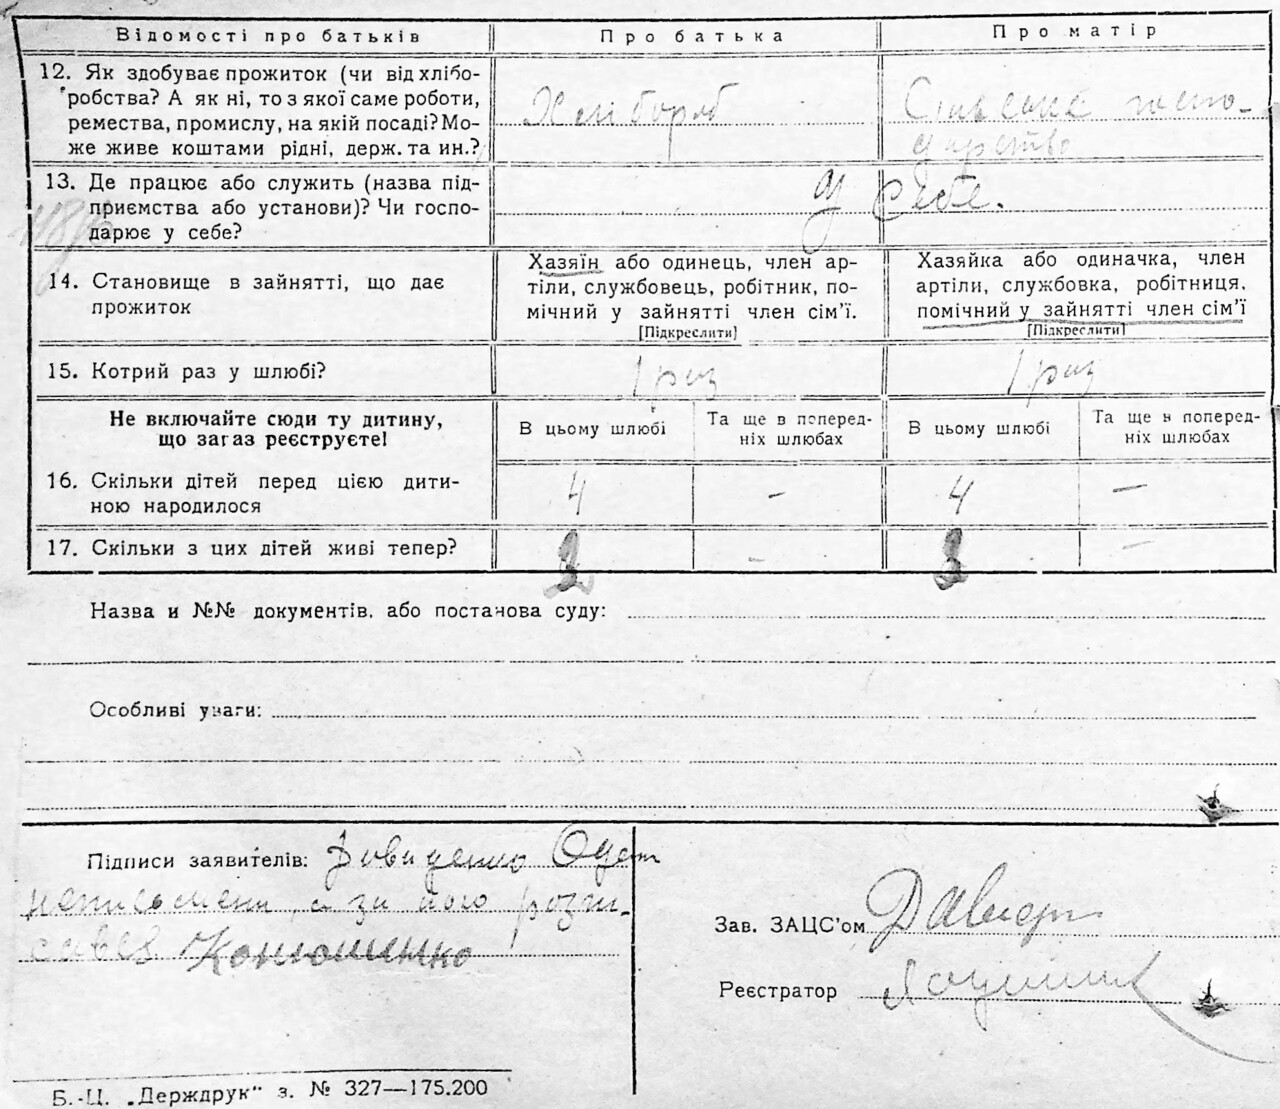 Відомості про батьків
Про батька
Про матір
12. Як здобуває прожиток (чи від хлібо-
робства? А як ні, то з якої саме роботи,
ремества, промислу, на якій посаді? Мо-
же живе коштами рідні, держ. та ин.?
Хлібороб
Сільське госпо-
дарство
13. Де працює або служить (назва під-
приємства або установи)? Чи госпо-
дарює у себе?
у себе.
14. Становище в зайнятті, що дає
прожиток
Хазяїн або одинець, член ар-
тіли, службовець, робітник, по-
мічний у зайнятті член сім'ї.
[Підкреслити]
Хазяйка або одиначка, член
артіли, службовка, робітниця,
помічний у зайнятті член сім'ї
[Підкреслити]
15. Котрий раз у шлюбі?
1 раз
1 раз
Не включайте сюди ту дитину,
що загаз реєструєте!
В цьому шлюбі
Та ще в поперед-
ніх шлюбах
В цьому шлюбі
Та ще в поперед-
ніх шлюбах
16. Скільки дітей перед цією дити-
ною народилося
4
-
4
-
17. Скільки з цих дітей живі тепер?
-
-
Назва и №№ документів, або постанова суду:
Особливі уваги:
Підписи заявителів:
неписьмени, а за його розпи-
сався Конюшенко
Зав. ЗАЦС'ом
Реєстратор
Б.-Ц. „Держдрук“ з. № 327—175.200